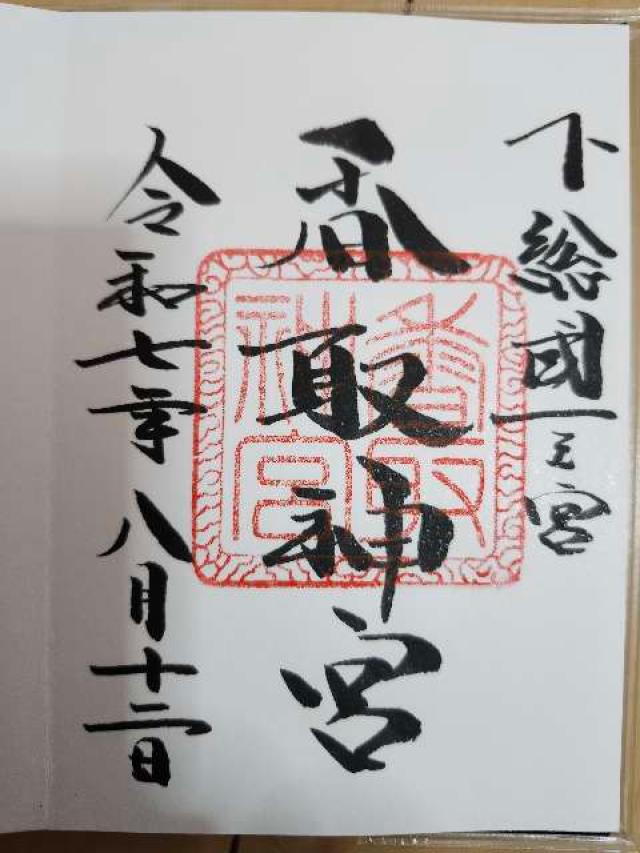 下総國一之宮
香取神宮
香取
神宮
令和七年八月十二日